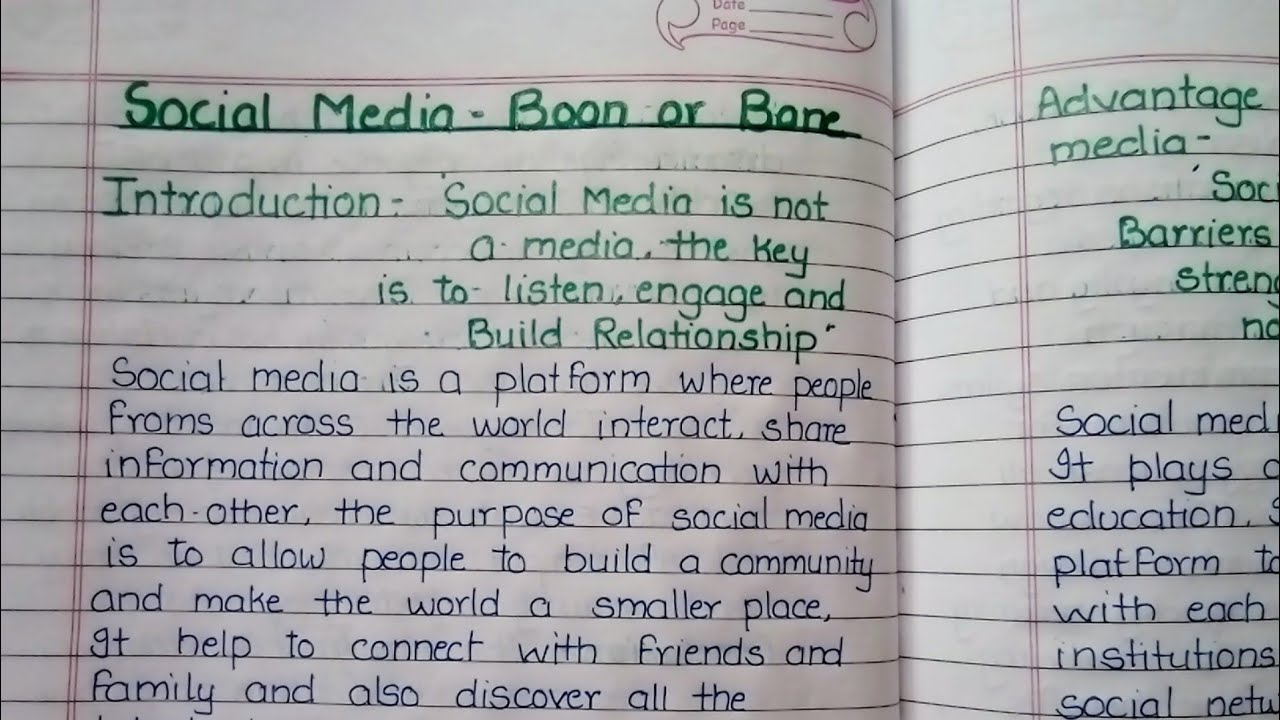 Date
Page
Social Media - Boon or Bane
Introduction - "Social Media is not
a media, the key
is to listen, engage and
Build Relationship"
Social media is a platform where people
froms across the world interact, share
information and communication with
each-other, the purpose of social media
is to allow people to build a community
and make the world a smaller place,
It help to connect with friends and
family and also discover all the
Advantage
media -
Barriers
Social
It plays
education,
platform
with each
institutions
social